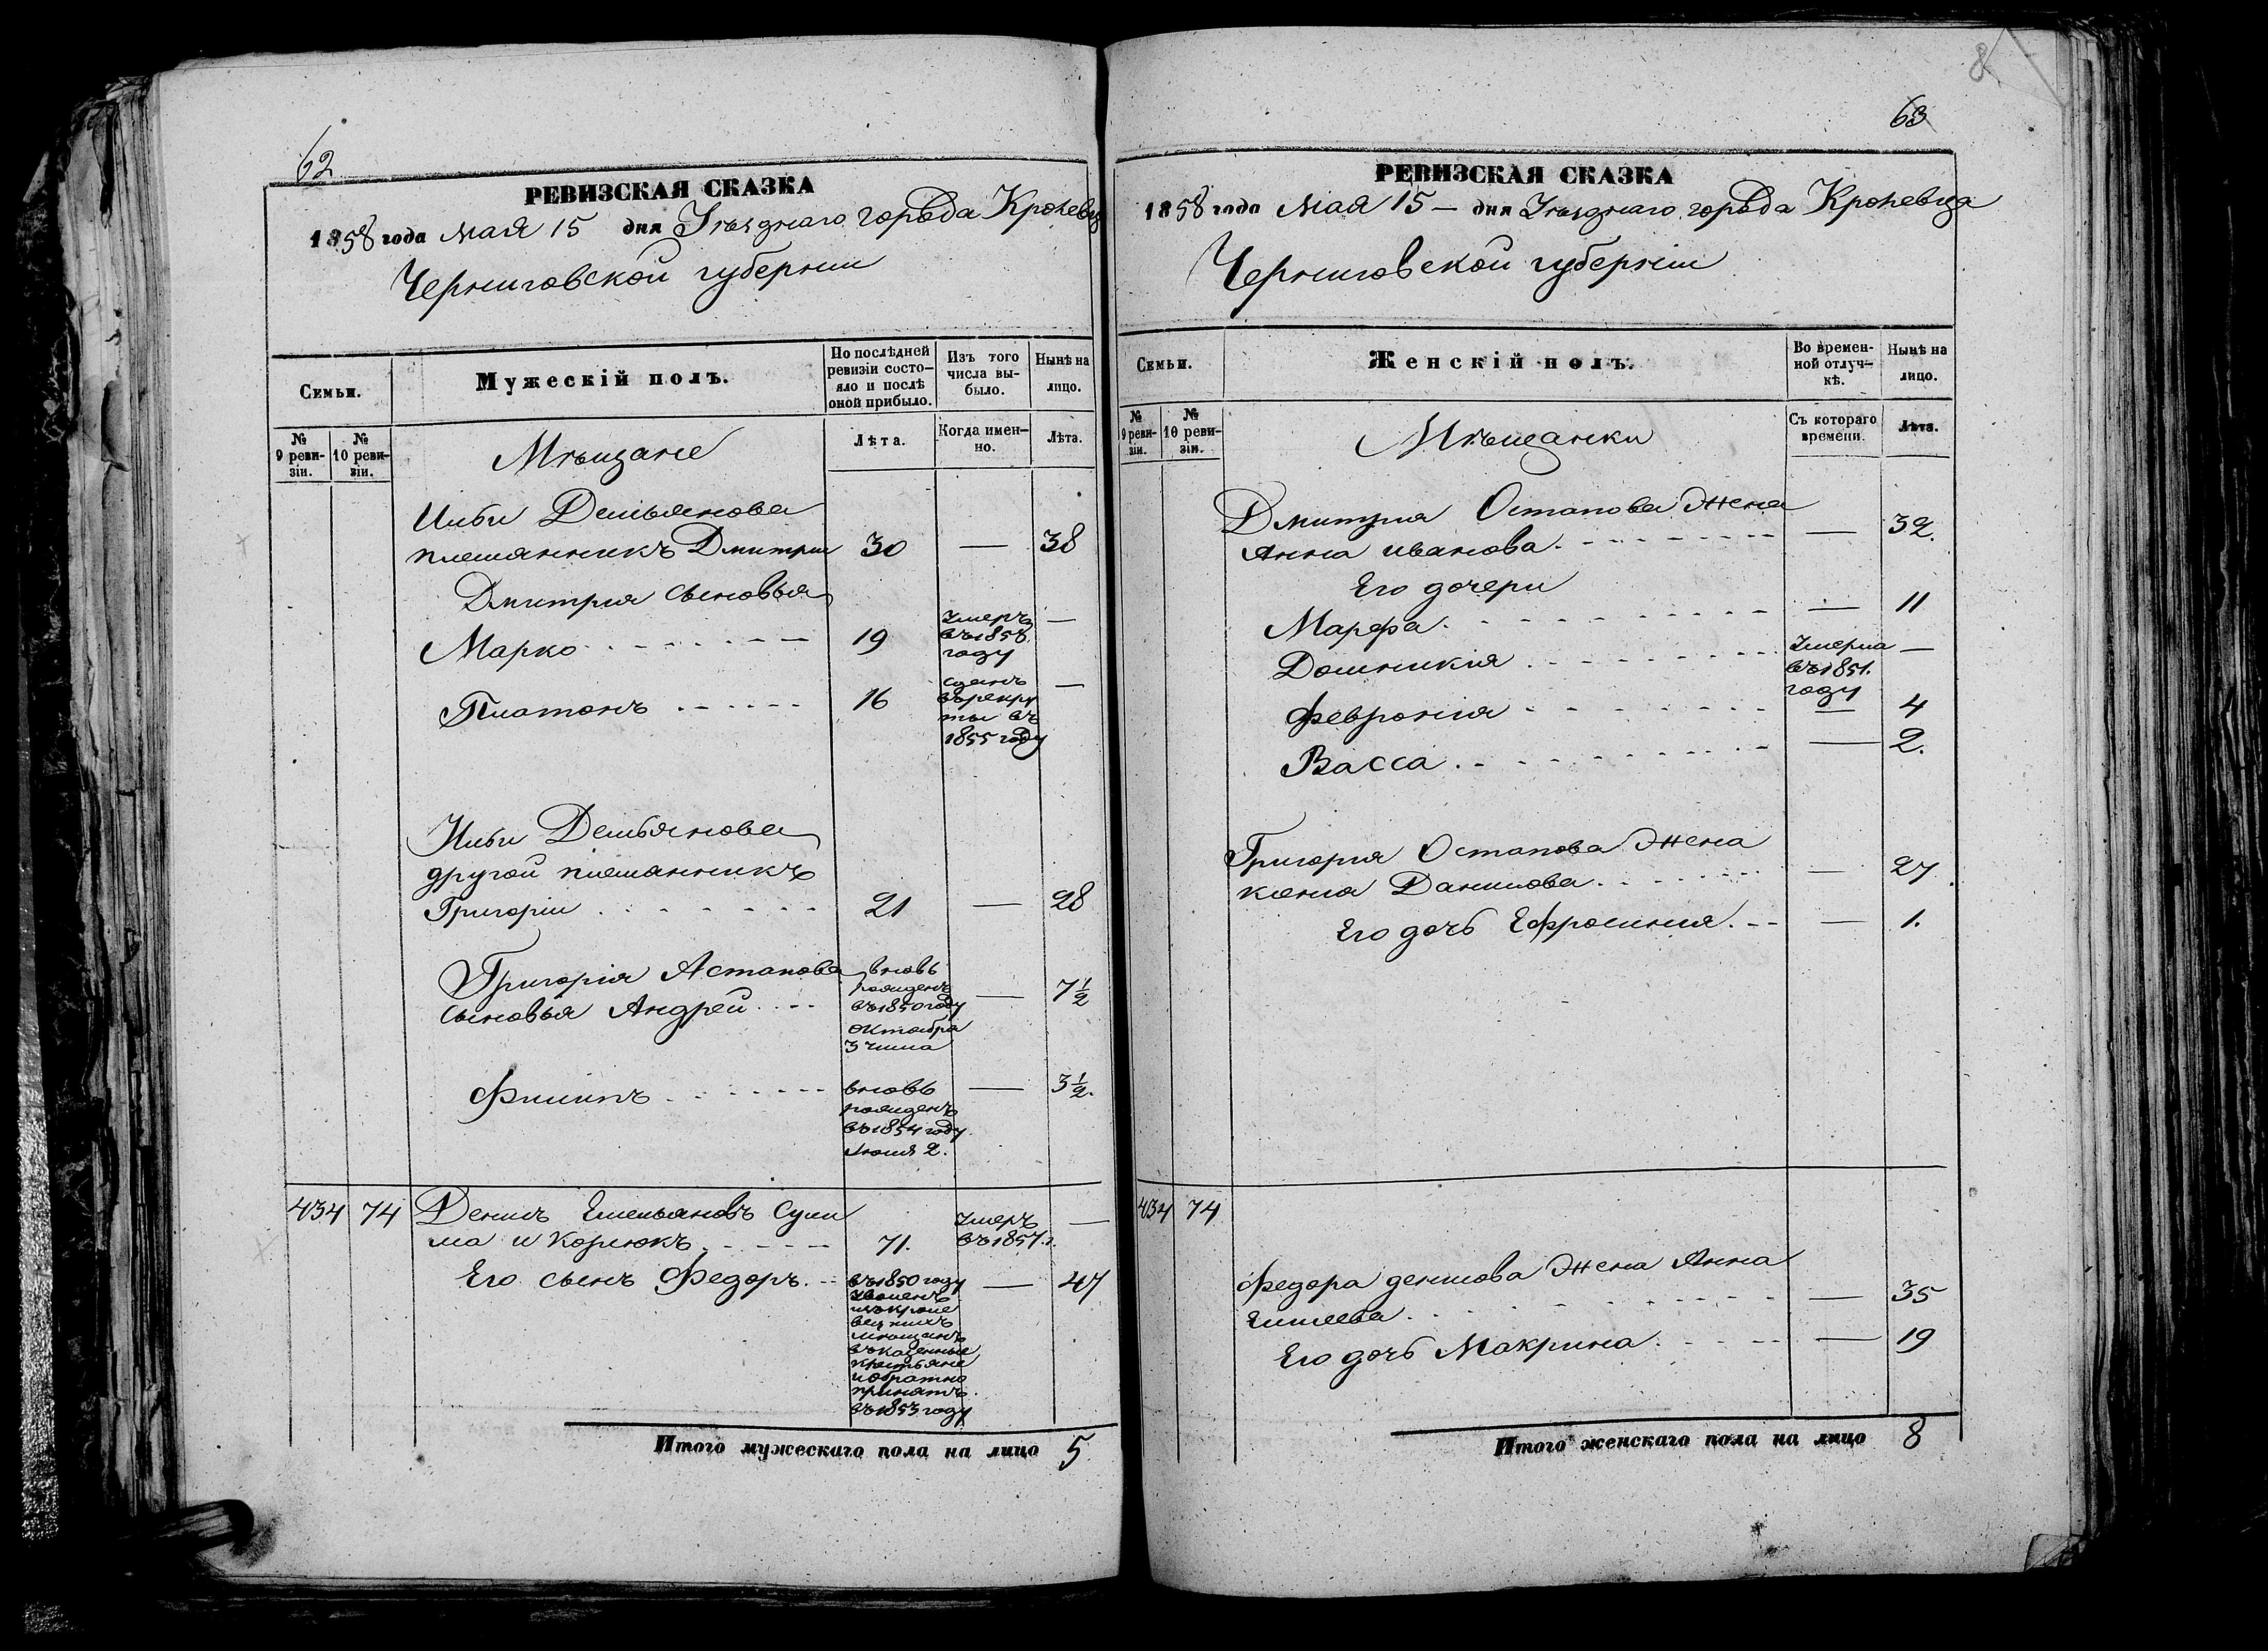 62
РЕВИЗСКАЯ СКАЗКА
1858 года мая 15 дня Уѣзднаго города Кролевца
Черниговской губернии
Семьи.
Мужескій полъ.
По послѣдней ревизіи состо-
яло и послѣ
оной прибыло.
Изъ того
числа вы-
было.
Нынѣ на
лицо.
№ 9 реви-
зіи.
№ 10 реви-
зіи.
Лѣта.
Когда имен-
но.
Лѣта.
Мѣщане
Ильи Демьянова
племянникъ Дмитрии 30 — 38
Дмитрия сыновья
Марко 19 умеръ въ 1858 году —
Платонъ 16 сданъ въ рекру
ты въ
1855 году —
Ильи Демьянова
другой племянникъ
Григоріи 21 — 28
Григорія Астапова
сыновья Андрей вновь
рожденъ
въ 1850 году
октобра
3 числа — 7 1/2
Филипъ вновь
рожденъ
въ 1854 году
июня 2. — 3 1/2.
434 74 Денисъ Емельяновъ Сули
ма и Корнюкъ 71. умеръ
въ 1857.г. —
Его сынъ Федоръ въ 1850 году
изъ кроле
вецкихъ
мѣщанъ
въ казенные
крестьяне
и обратно
принятъ
въ 1853 году — 47
Итого мужескаго пола на лицо 5
8
63
РЕВИЗСКАЯ СКАЗКА
1858 года Мая 15 — дня Уѣзднаго города Кролевца
Черниговской губерніи
Семьи.
Женскій полъ.
Во времен-
ной отлуч-
кѣ.
Нынѣ на
лицо.
№ 9 реви-
зіи.
№ 10 реви-
зіи.
Съ котораго
времени.
Лѣта.
Мѣщанки
Дмитрия Остапова Жена
Анна иванова. — 32.
Его дочери
Марфа. — 11
Домникия умерла
въ 1851.
году —
Феврония — 4
Васса. — 2.
Григория Остапова Жена
ксения Данилова. — 27.
Его дочь Ефросиния. — 1.
434 74
Федора денисова Жена Анна
Елисеева. — 35
Его дочь Макрина. — 19
Итого женскаго пола на лицо 8